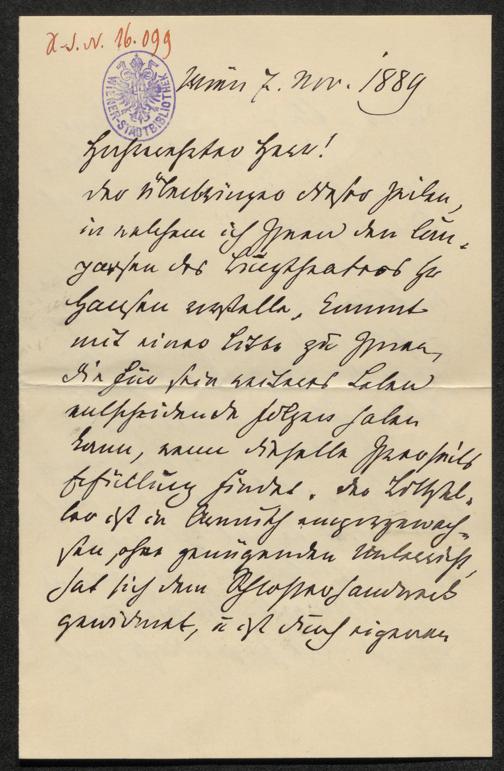 H.I.N. 16.099
WIENER-STADTBIBLIOTHEK
Wien 7. Nov. 1889
Hochverehrter Herr!
der Überbringer dieser Zeilen,
in welchem ich Ihnen den
des Burgtheaters Hr
Hansen vorstelle, kommt
mit einer Bitte zu Ihnen,
die für sein weiteres Leben
entscheidende Folgen haben
kann, wenn dieselbe Ihrerseits
Erfüllung findet. der Bittstel-
ler ist in Armuth emporgewach-
sen, ohne genügenden Unterricht,
hat sich dem Schlosserhandwerk
gewidmet, u ist durch eigenen